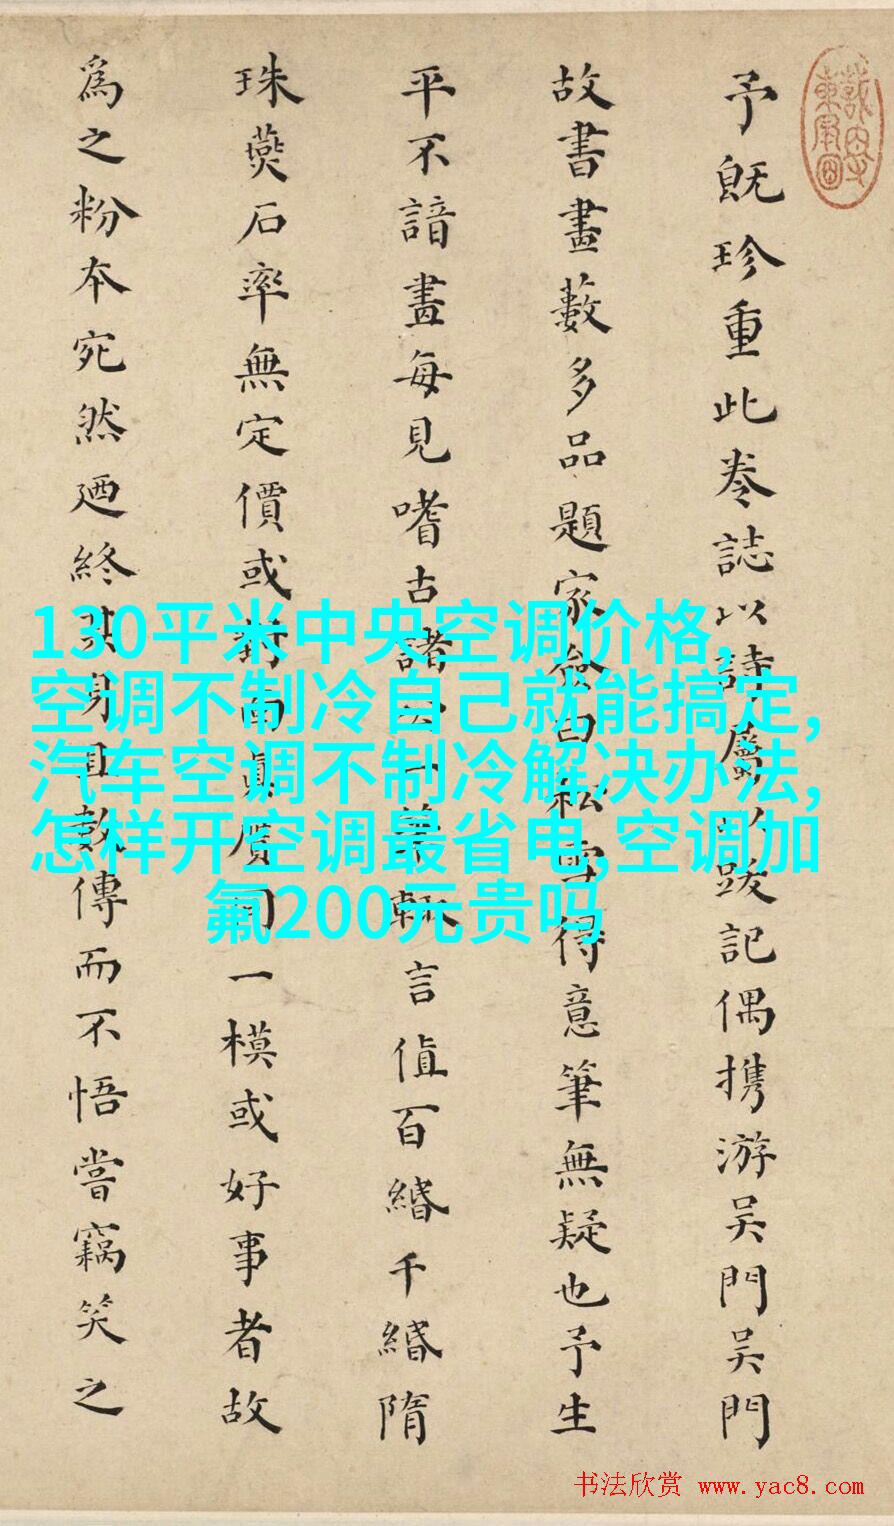 予既珍重此卷誌以詩以跋記偶携游吴門吴門
故書畫藪多品題家僉曰松雪得意筆無疑也予生
平不諳畫每見嗜古諸公一輒言值百緡千緡隋
珠燕石率無定價或對面真贋同一模或好事者故
為之粉本宛然廼終其身且數傳而不悟嘗竊笑之
130平米中央空调价格,
空调不制冷自己就能搞定,
汽车空调不制冷解决办法,
怎样开空调最省电,空调加
氟200元贵吗
书法欣赏 www.yac8.com